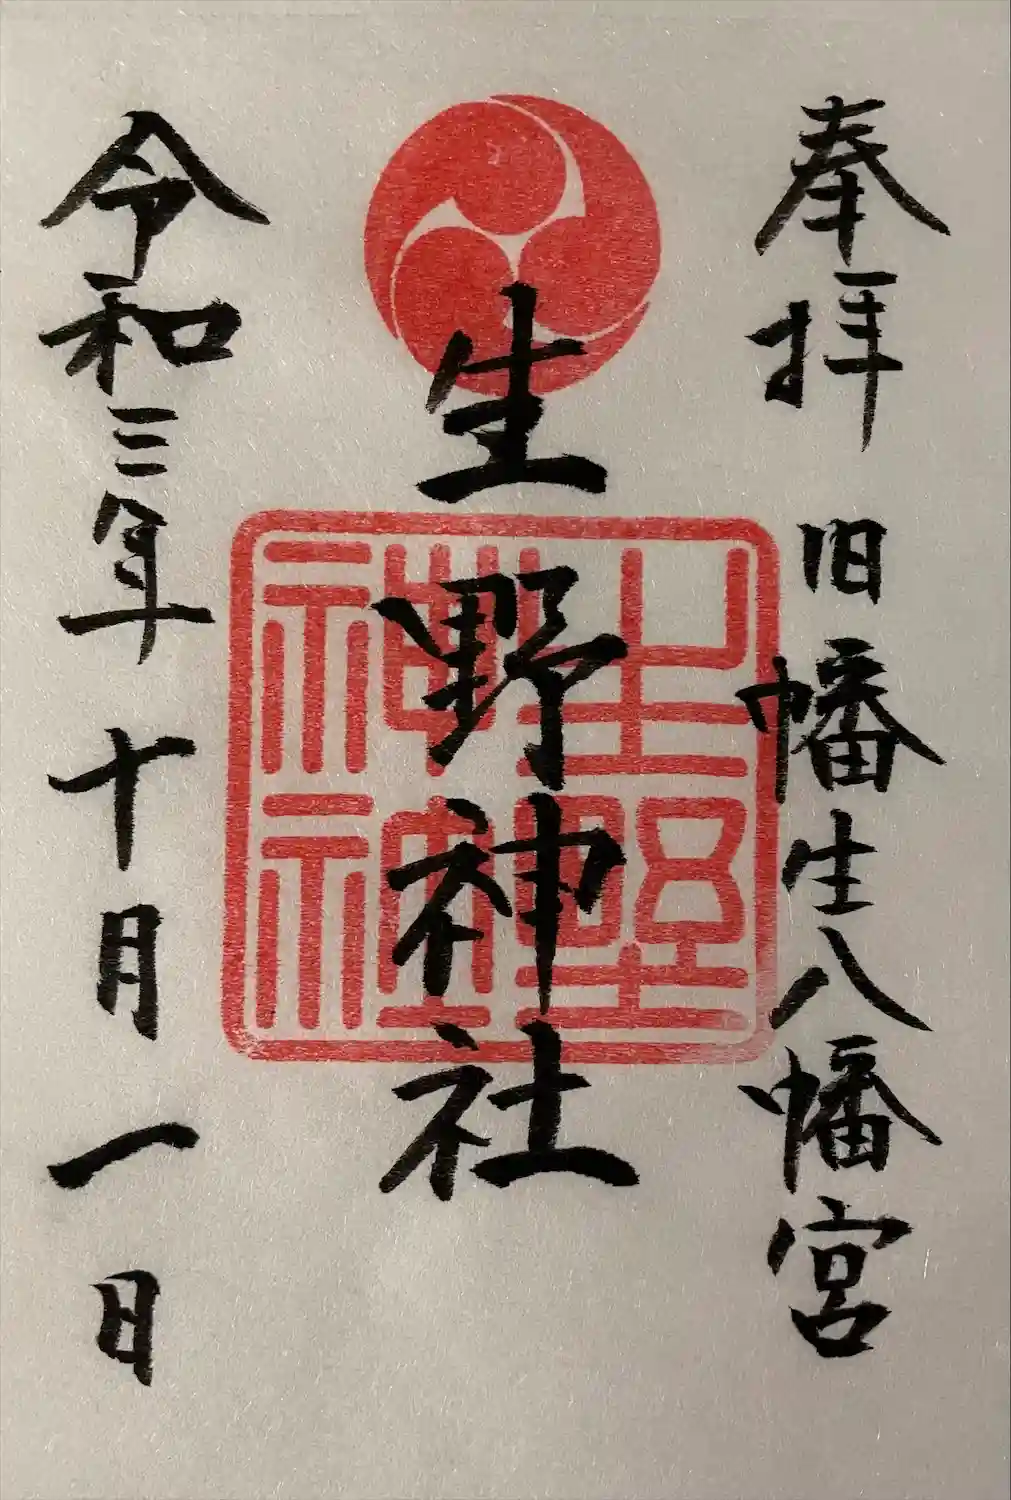 奉拝 旧幡生八幡宮
生野神社
生野神社
令和三年十月一日